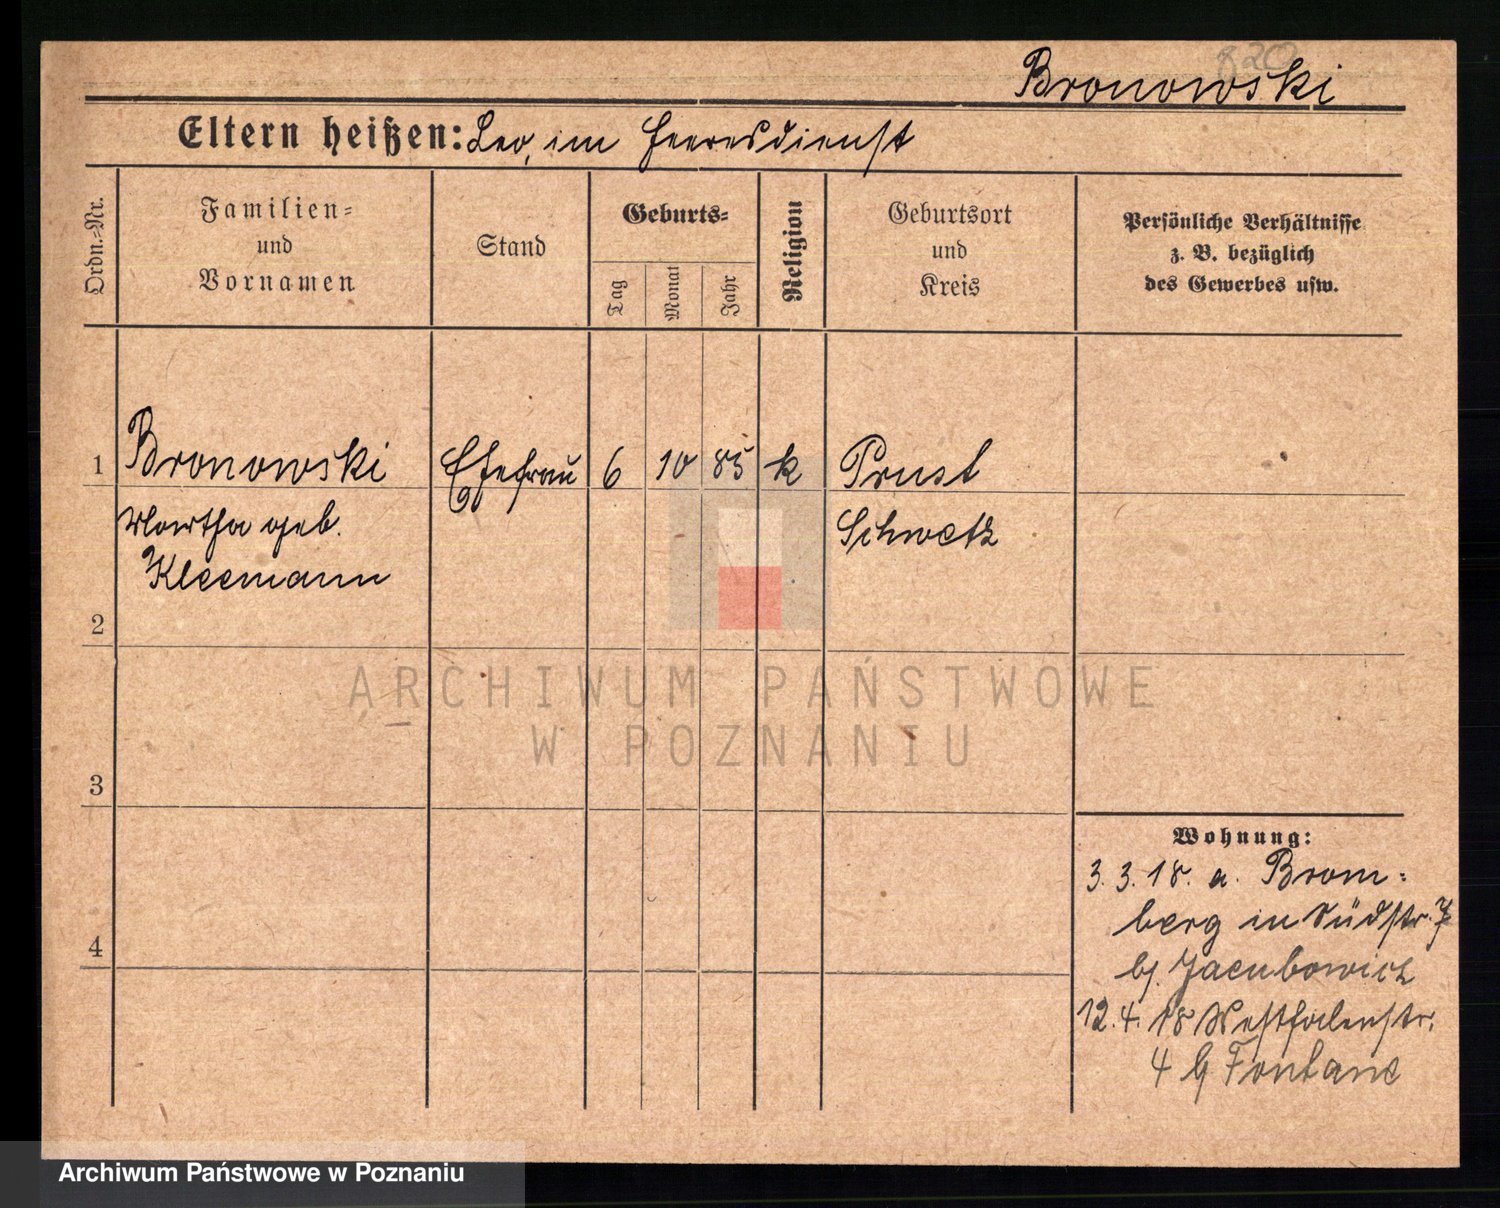 820
Bronowski
Eltern heißen: Leo, im Heeresdienst
Ordn.-Nr.
Familien-
und
Vornamen
Stand
Geburts-
Tag
Monat
Jahr
Religion
Geburtsort
und
Kreis
Persönliche Verhältnisse
z. B. bezüglich
des Gewerbes usw.
1 Bronowski Ehefrau 6 10 85 k Prust
Martha geb. Schwetz
Kleemann
2
ARCHIWUM PAŃSTWOWE
W POZNANIU
3
Wohnung:
3. 3. 18. a. Brom-
berg in Südstr. 7
bj. Jacubowicz
4
12. 4. 18 Westfalenstr.
4 Fontane
Archiwum Państwowe w Poznaniu